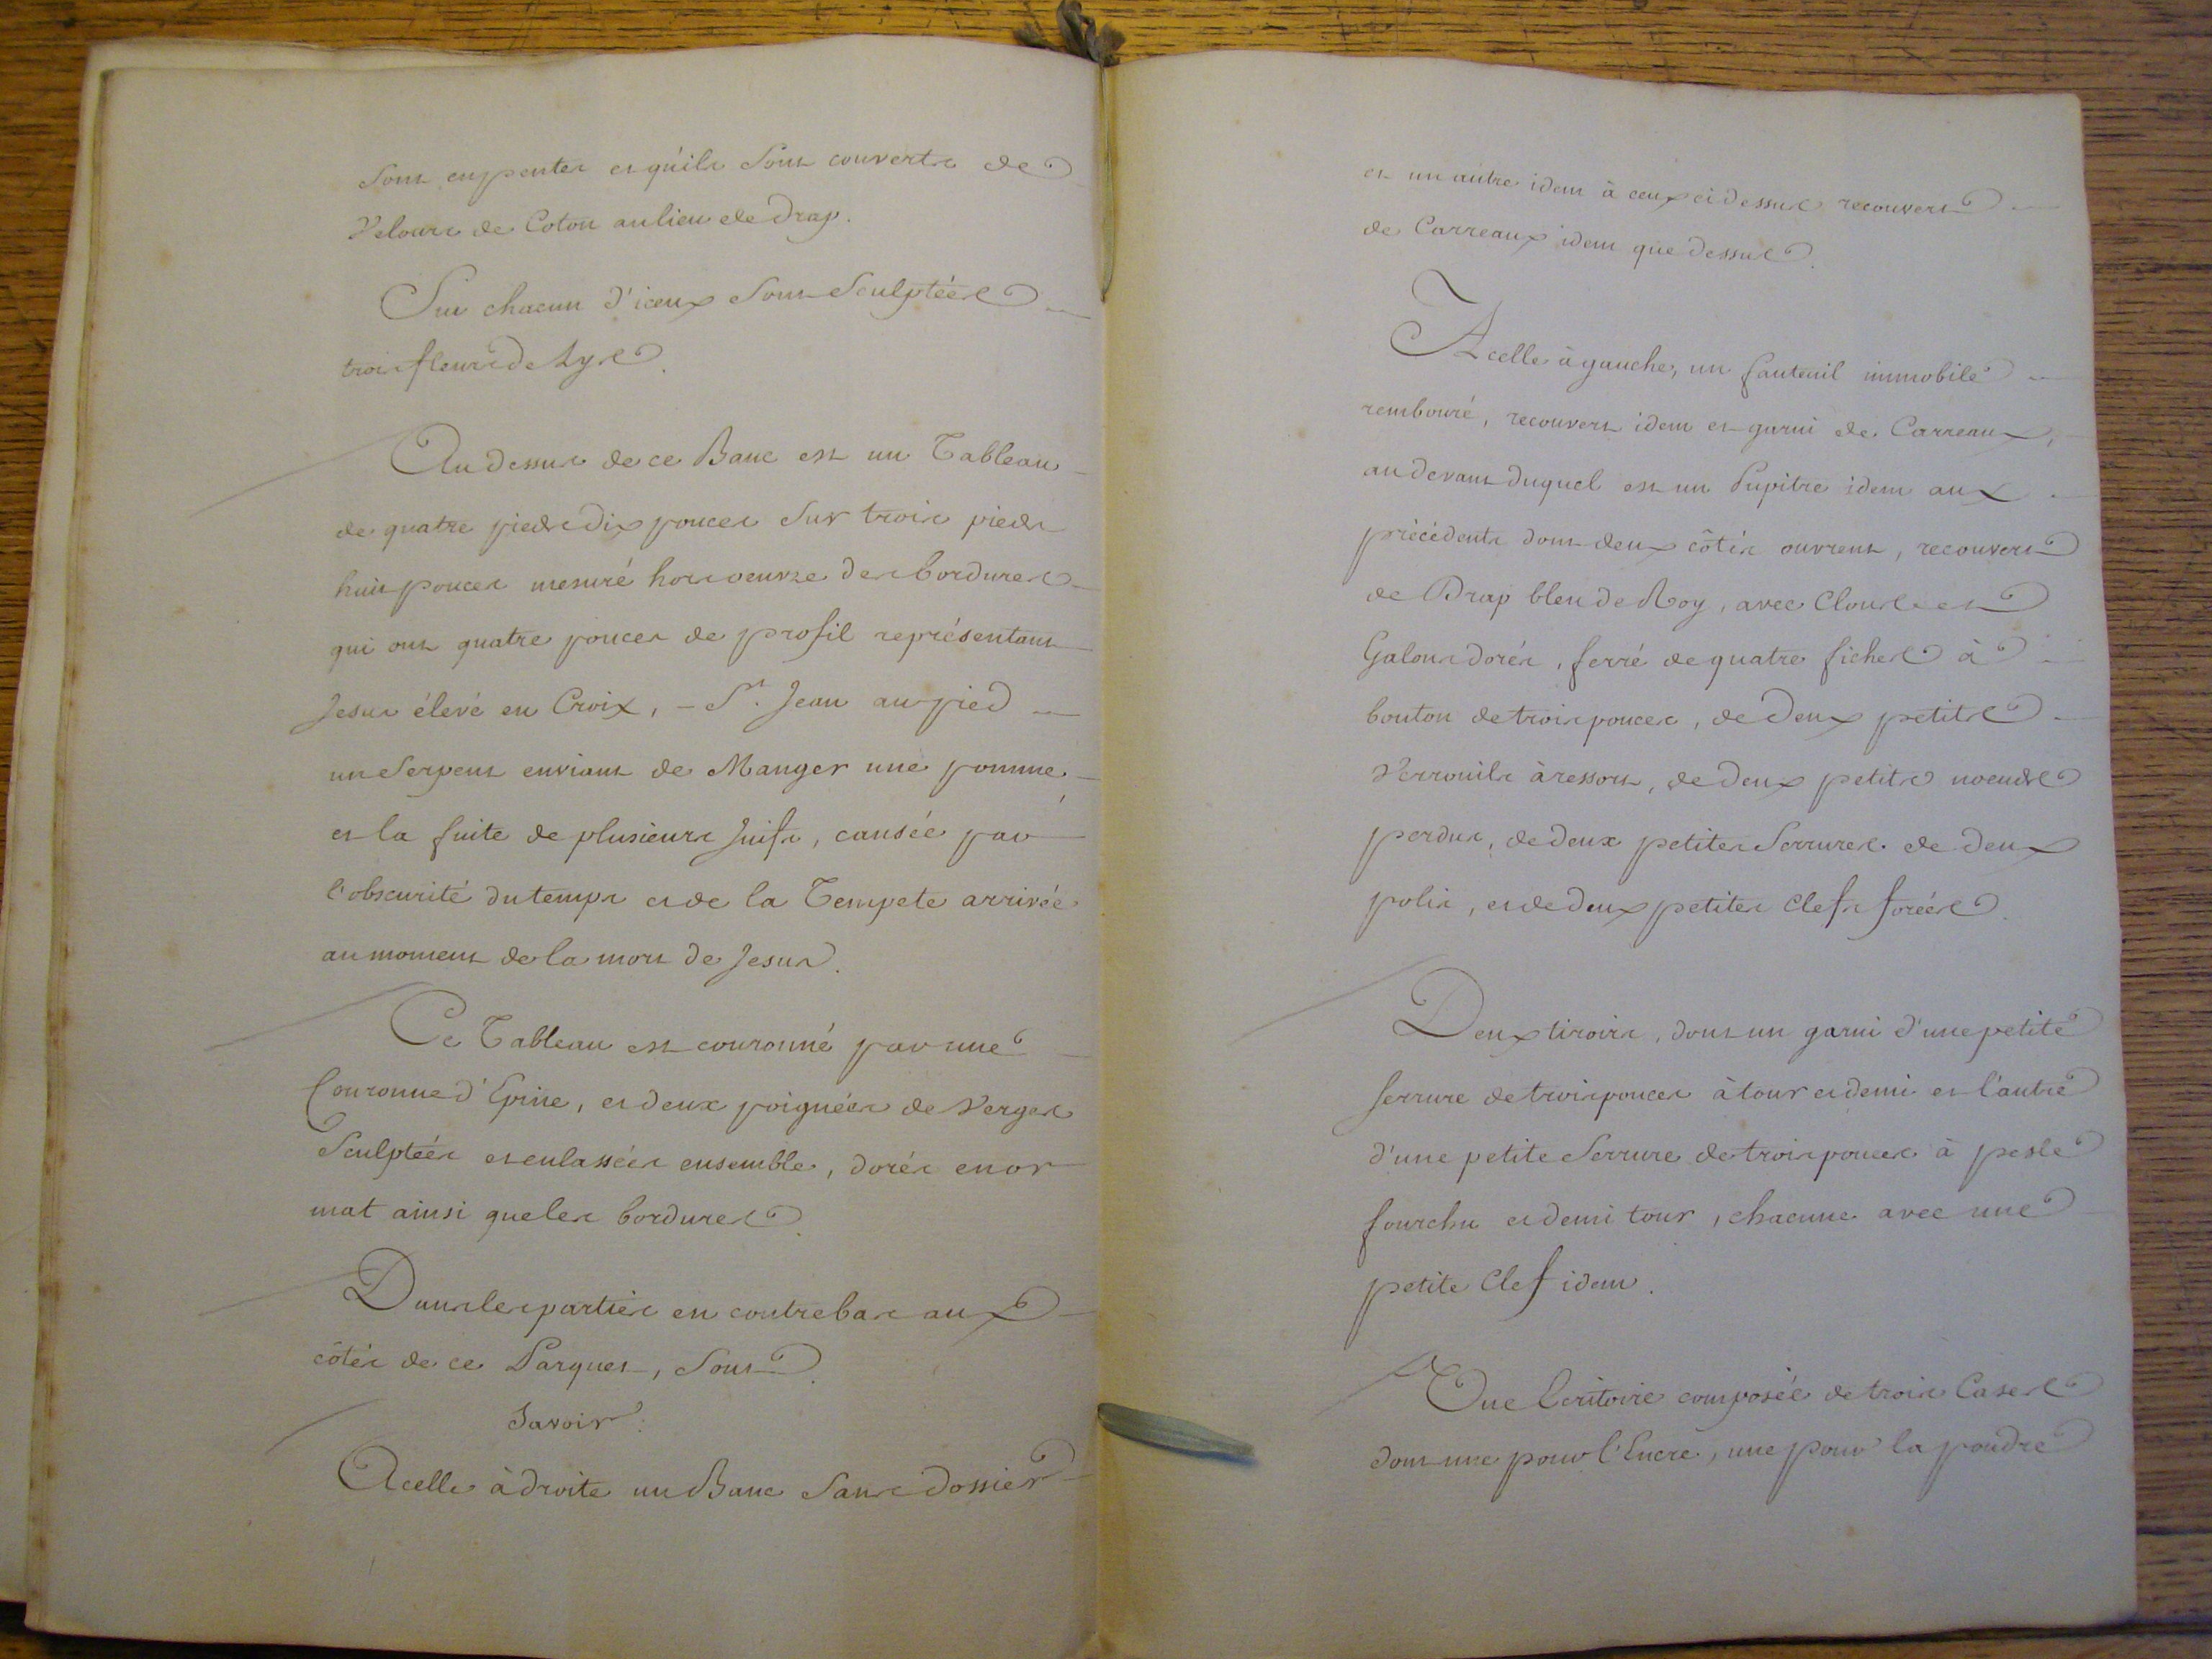 sont en pentes et qu'ils sont couverts de
Velours de Coton au lieu de Drap.
Sur chacun d'iceux sont sculptées
trois fleurs de Lys.
Au dessus de ce Banc est un Tableau
de quatre pieds dix pouces sur trois pieds
huit pouces mesuré hors oeuvre des bordures
qui ont quatre pouces de profil représentant
Jesus élevé en Croix, - St. Jean au pied
un Serpent enviant de Manger une pomme,
et la fuite de plusieurs Juifs, causée par
l'obscurité du temps et de la Tempete arrivée
au moment de la mort de Jesus.
Ce Tableau est couronné par une
Couronne d'Epine, et deux poignées de Verges
Sculptées et enlassées ensemble, dorés en or
mat ainsi que les bordures.
Dans les parties en contrebas aux
côtés de ce Parquet, sont.
Savoir:
A celle à droite un Banc sans dossier
et un autre idem à ceux ci dessus recouvert
de Carreaux idem que dessus.
A celle à gauche, un fauteuil immobile
rembouré, recouvert idem et garni de Carreaux,
au devant duquel est un Pupitre idem aux
précédents dont deux côtés ouvrent, recouvert
de Drap bleu de Roy, avec Clous et
Galons dorés, ferré de quatre fiches à
bouton de trois pouces, de deux petits
Verrouils à ressort, de deux petits noeuds
perdus, de deux petites Serrures de deux
polis, et de deux petites Clefs forées.
Deux tiroirs, dont un garni d'une petite
serrure de trois pouces à tour et demi et l'autre
d'une petite Serrure de trois pouces à pesle
fourchu et demi tour, chacune avec une
petite Clef idem.
Une Ecritoire composée de trois Cases
dont une pour l'Encre, une pour la poudre